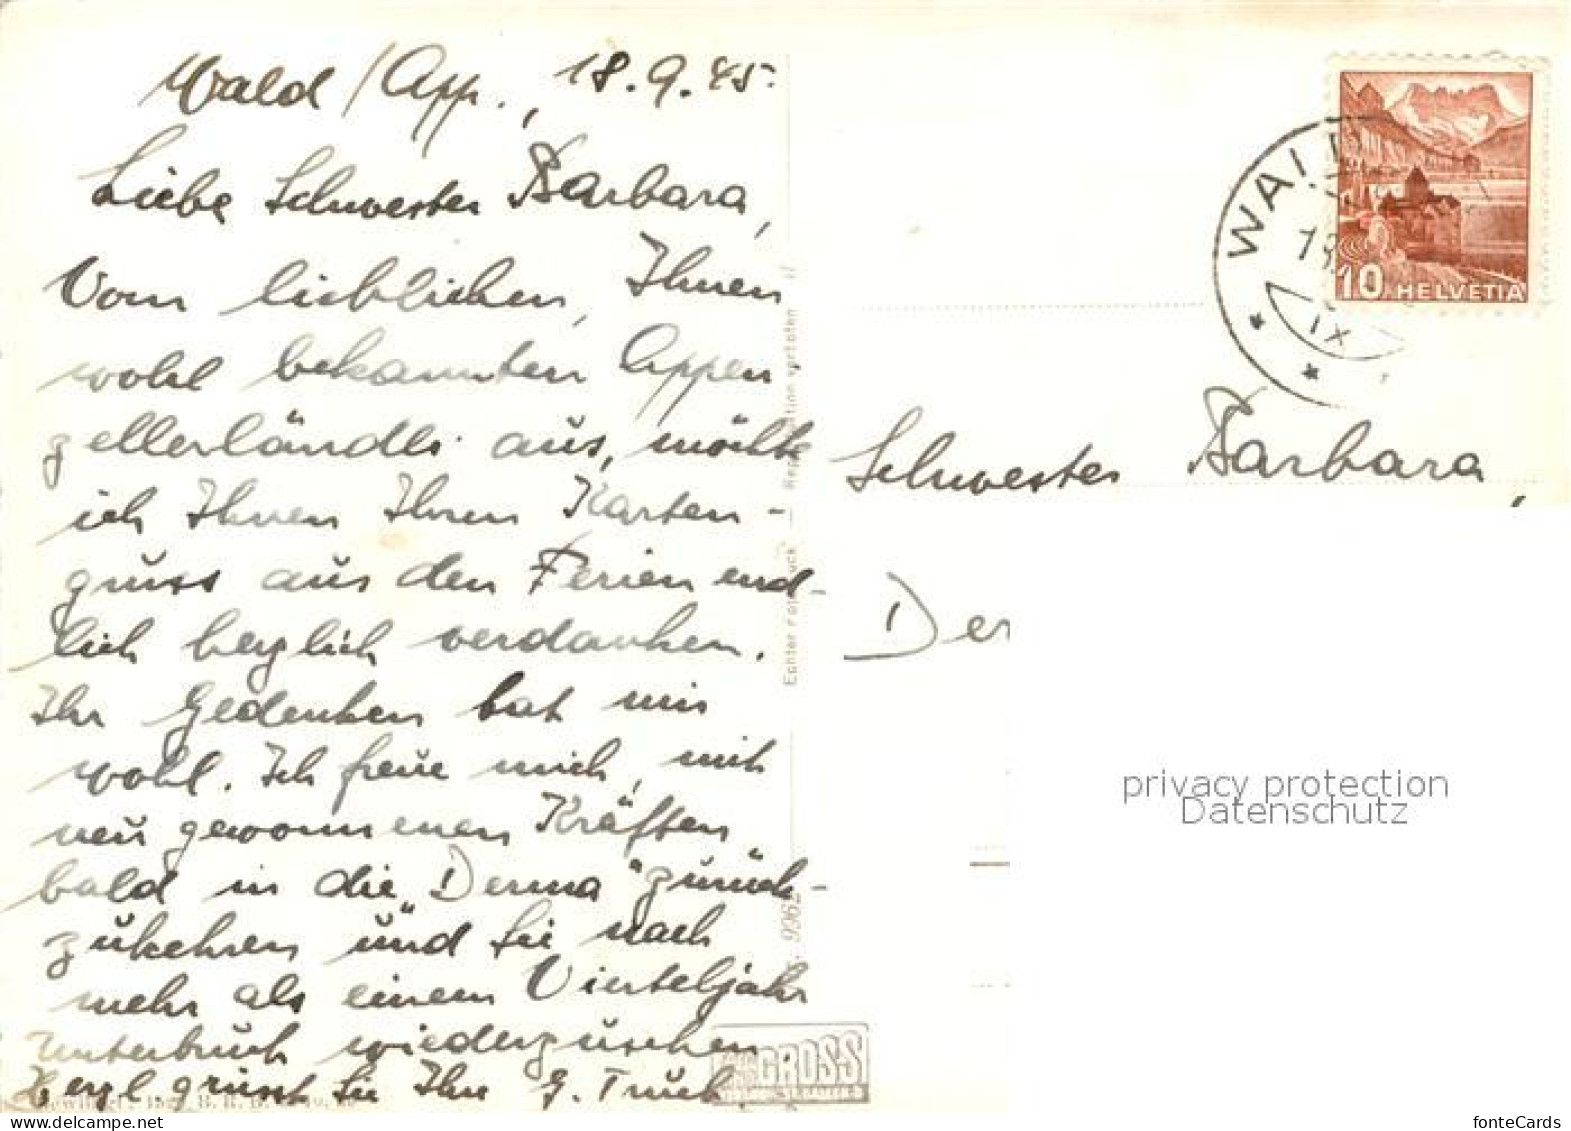 Wald / App., 18.9.45.
Liebe Schwester Barbara,
Vom lieblichen, Ihnen
wohl bekannten Appen-
zellerländli aus, möchte
ich Ihnen Ihren Karten-
gruss aus den Ferien end-
lich herzlich verdanken.
Ihr Gedenken tat mir
wohl. Ich freue mich, mit
neu gewonnenen Kräften
bald in die "Derma" zurück-
zukehren und Sie nach
mehr als einem Vierteljahr
Unterbruch wiederzusehen.
Herzl. grüsst Sie Ihr G.
Echter Fotodruck - Reproduktion verboten
9962
GROSS
WAL
IX
10 HELVETIA
Schwester Barbara,
Der
privacy protection
Datenschutz
fonteCards